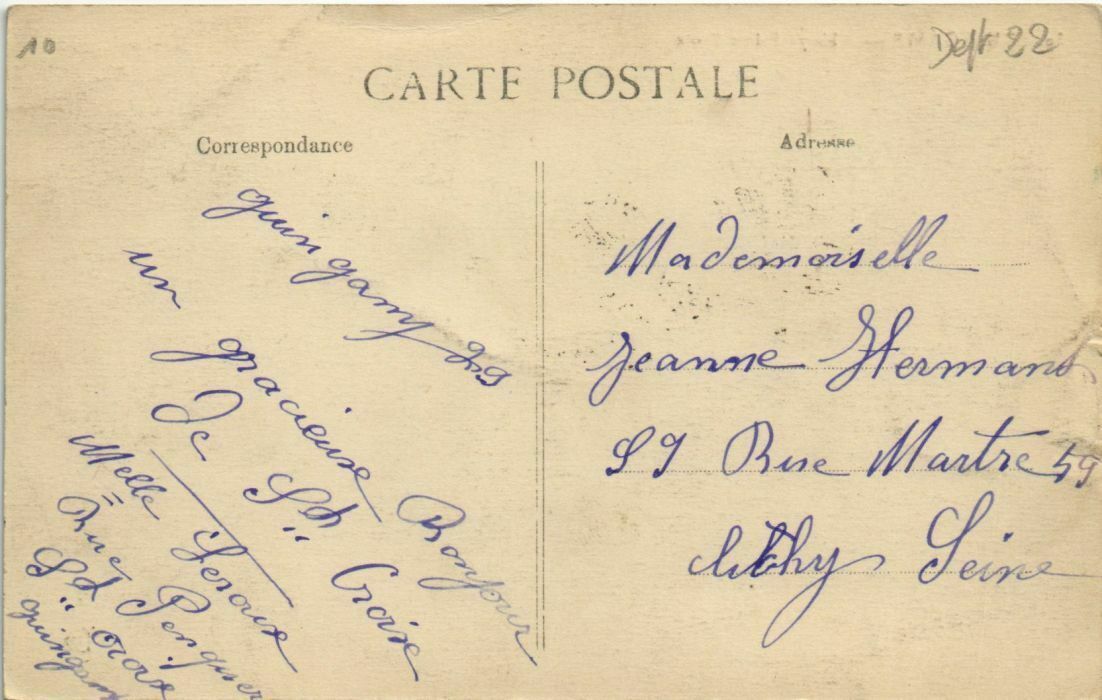 10
Dept 22
CARTE POSTALE
Correspondance
Adresse
guingamp 29
un gracieuse Bonjour
De St Croixe
Melle Leroux
Rue
St Croix
guingamp
Mademoiselle
Jeanne Hermant
59 Rue Martre 59
Clichy Seine